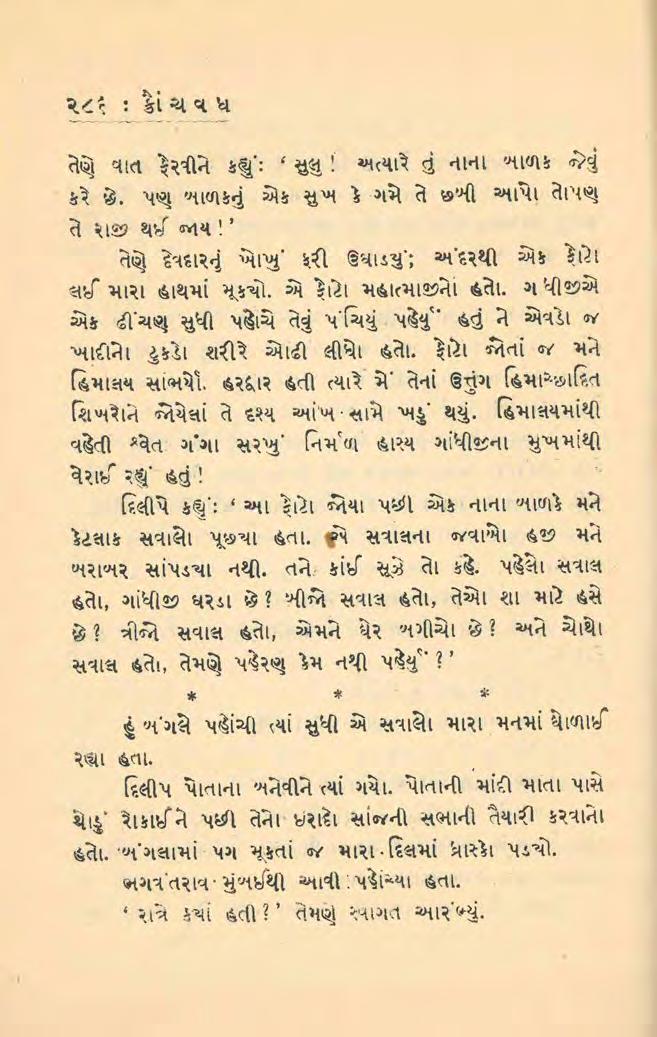 ૨૮૬ : ક્રૌંચવધ
તેણે વાત ફેરવીને કહ્યું: ‘ સુલુ ! અત્યારે તું નાના બાળક જેવું
કરે છે. પણ બાળકનું એક સુખ કે ગમે તે છબી આપો તોપણ
તે રાજી થઈ જાય ! ’
તેણે દેવદારનું ખોખું ફરી ઉઘાડયું; અંદરથી એક ફોટો
લઈ મારા હાથમાં મૂકચો. એ ફોટો મહાત્માજીનો હતો. ગાંધીજીએ
એક ઢીંચણ સુધી પહોચે તેવું પંચિયું પહેર્યું હતું ને એવડો જ
ખાદીનો ટુકડો શરીરે ઓઢી લીધો હતો. ફોટો જોતાં જ મને
હિમાલય સાંભર્યો. હરદ્વાર હતી ત્યારે મેં તેનાં ઉત્તુંગ હિમાચ્છાદિત
શિખરોને જોયેલાં તે દશ્ય આંખ સામે ખડું થયું. હિમાલયમાંથી
વહેતી શ્વેત ગંગા સરખું નિર્મળ હાસ્ય ગાંધીજીના મુખમાંથી
વેરાઈ રહ્યું હતું !
દિલીપે કહ્યું: ‘ આ ફોટો જોયા પછી એક નાના બાળકે મને
કેટલાક સવાલો પૂછયા હતા. એ સવાલના જવાબો હજી મને
બરાબર સાંપડયા નથી. તને કાંઈ સૂઝે તો કહે. પહેલો સવાલ
હતો, ગાંધીજી ઘરડા છે ? બીજો સવાલ હતો, તેઓ શા માટે હસે
છે ? ત્રીજો સવાલ હતો, એમને ઘેર બગીચો છે ? અને ચોથો
સવાલ હતો, તેમણે પહેરણ કેમ નથી પહેર્યું ? ’
* * *
હું બંગલે પહોંચી ત્યાં સુધી એ સવાલો મારા મનમાં ઘોળાઈ
રહ્યા હતા.
દિલીપ પોતાના બનેવીને ત્યાં ગયો. પોતાની માંદી માતા પાસે
થોડું રોકાઈને પછી તેનો ઇરાદો સાંજની સભાની તૈયારી કરવાનો
હતો. બંગલામાં પગ મૂકતાં જ મારા દિલમાં ધ્રાસ્કો પડચો.
ભગવંતરાવ મુંબઈથી આવી પહોંચ્યા હતા.
‘ રાત્રે કયાં હતી ? ’ તેમણે સ્વાગત આરંભ્યું.